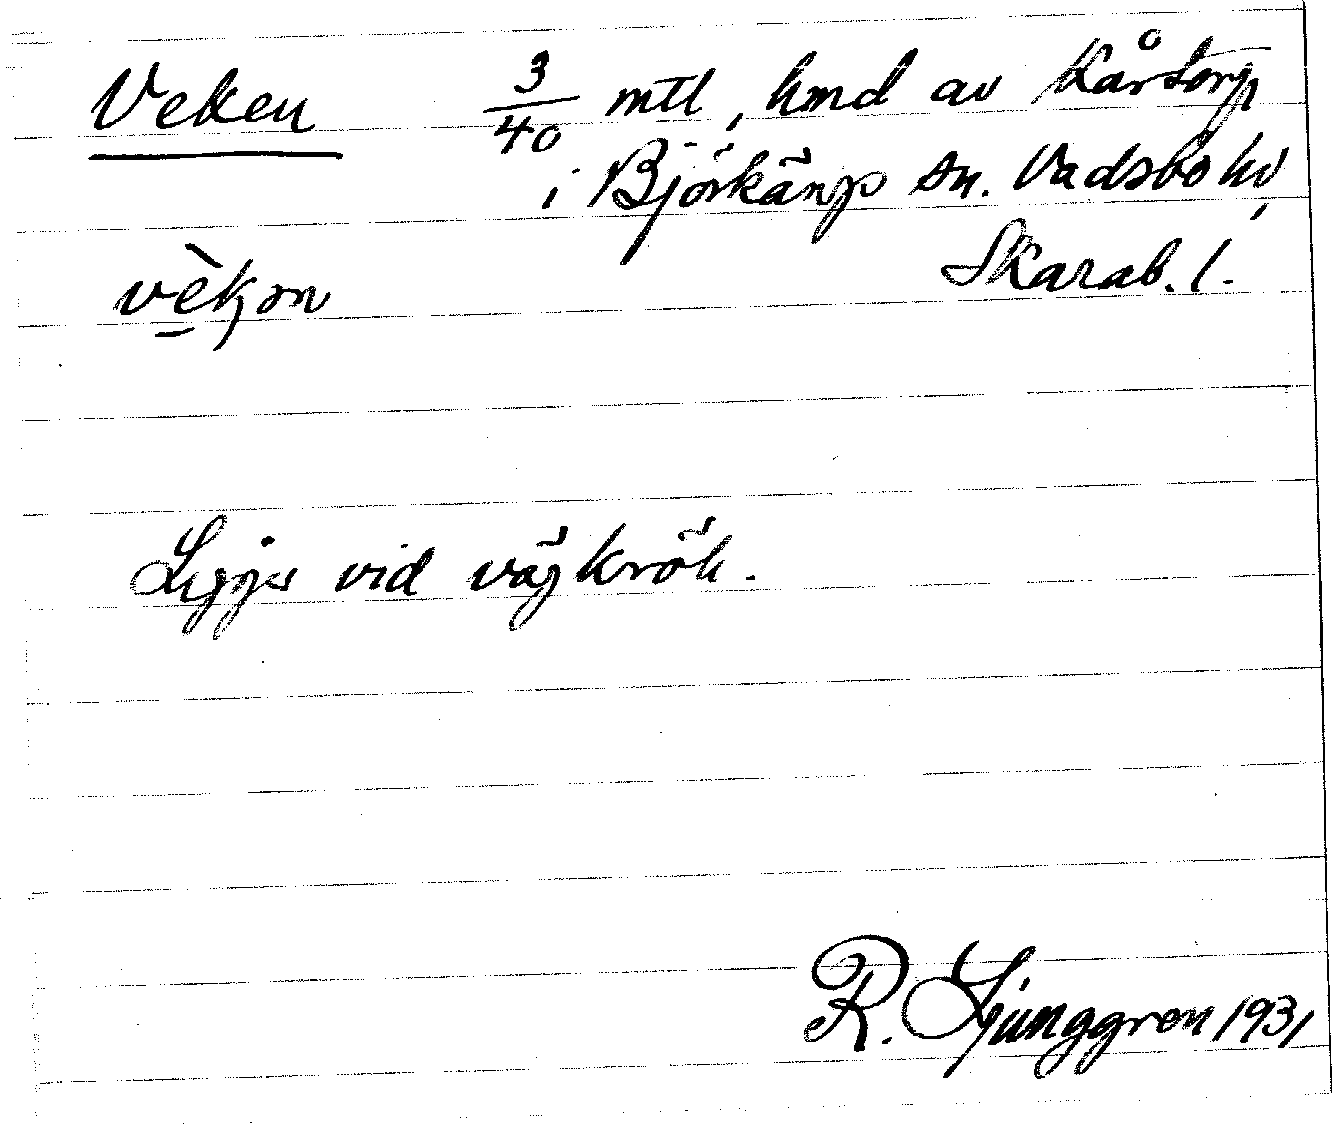 Veken 3/40 mtl, hmd av Kårtorp
i Björkäng sn. Vadsbo hd,
Skarab. l.
vèkən
Ligger vid vägkrök.
R. Ljunggren 1931